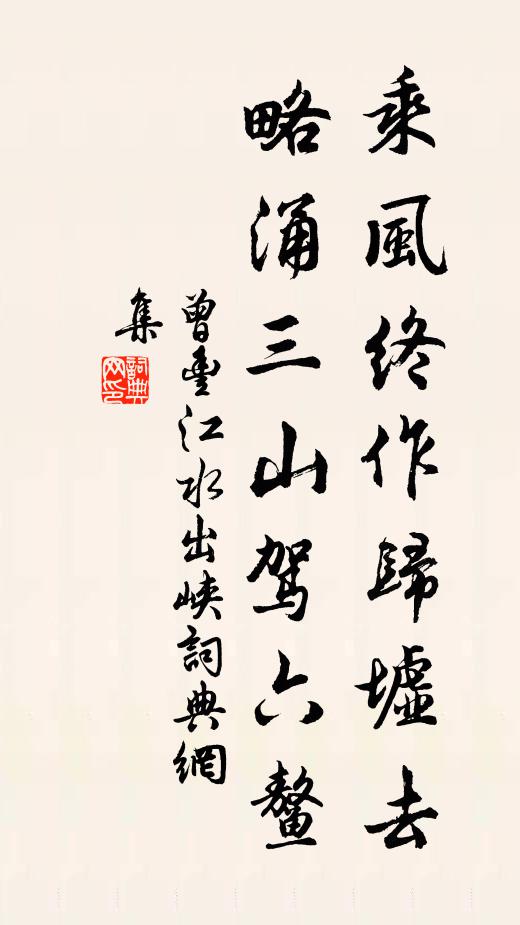 乘風終作歸墟去
略涌三山駕六鰲
曾豐江水出峽詞典網
集
詞典
网印